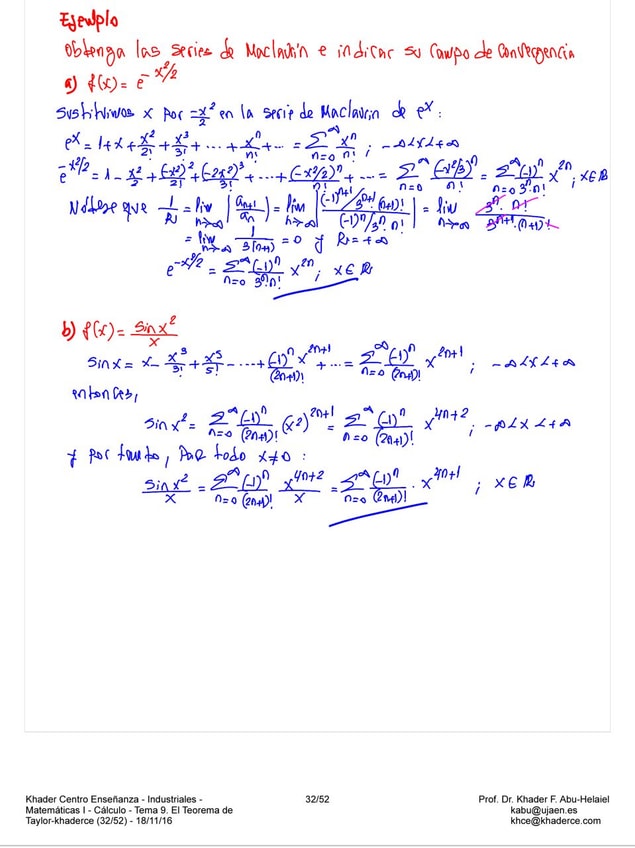 Ejemplo
Obtenga las series de Maclaurin e indicar su campo de convergencia
a) f(x) = e^{-x²/2}
Sustituimos x por -x²/2 en la serie de Maclaurin de e^x :
e^x = 1+x+x²/2!+x³/3!+...+x^n/n!+... = Σ_{n=0}^∞ x^n/n! ; -∞<x<+∞
e^{-x²/2} = 1 - x²/2 + (-x²)²/2! + (-2x2)³/3! + ... + (-x²/2)^n/n! + ... = Σ_{n=0}^∞ (-x²/3)^n/n! = Σ_{n=0}^∞ (-1)^n/3^n·n! x^{2n} ; x∈R
Nótese que 1/R = lim_{n→∞} |a_{n+1}/a_n| = lim_{n→∞} |(-1)^{n+1}/3^{n+1}(n+1)! / (-1)^n/3^n·n!| = lim_{n→∞} 3^n·n!/3^{n+1}·(n+1)!
= lim_{n→∞} 1/3(n+1) = 0 y R=+∞
e^{-x²/2} = Σ_{n=0}^∞ (-1)^n/3^n n! x^{2n} ; x∈R
b) f(x) = sinx²/x
sinx = x - x³/3! + x⁵/5! - ... + (-1)^n x^{2n+1}/(2n+1)! + ... = Σ_{n=0}^∞ (-1)^n/(2n+1)! x^{2n+1} ; -∞<x<+∞
entonces,
sinx² = Σ_{n=0}^∞ (-1)^n/(2n+1)! (x²)^{2n+1} = Σ_{n=0}^∞ (-1)^n/(2n+1)! x^{4n+2} ; -∞<x<+∞
y por tanto, para todo x≠0 :
sinx²/x = Σ_{n=0}^∞ (-1)^n/(2n+1)! x^{4n+2}/x = Σ_{n=0}^∞ (-1)^n/(2n+1)! · x^{4n+1} ; x∈R
Khader Centro Enseñanza - Industriales -
Matemáticas I - Cálculo - Tema 9. El Teorema de
Taylor-khaderce (32/52) - 18/11/16
32/52
Prof. Dr. Khader F. Abu-Helaiel
kabu@ujaen.es
khce@khaderce.com